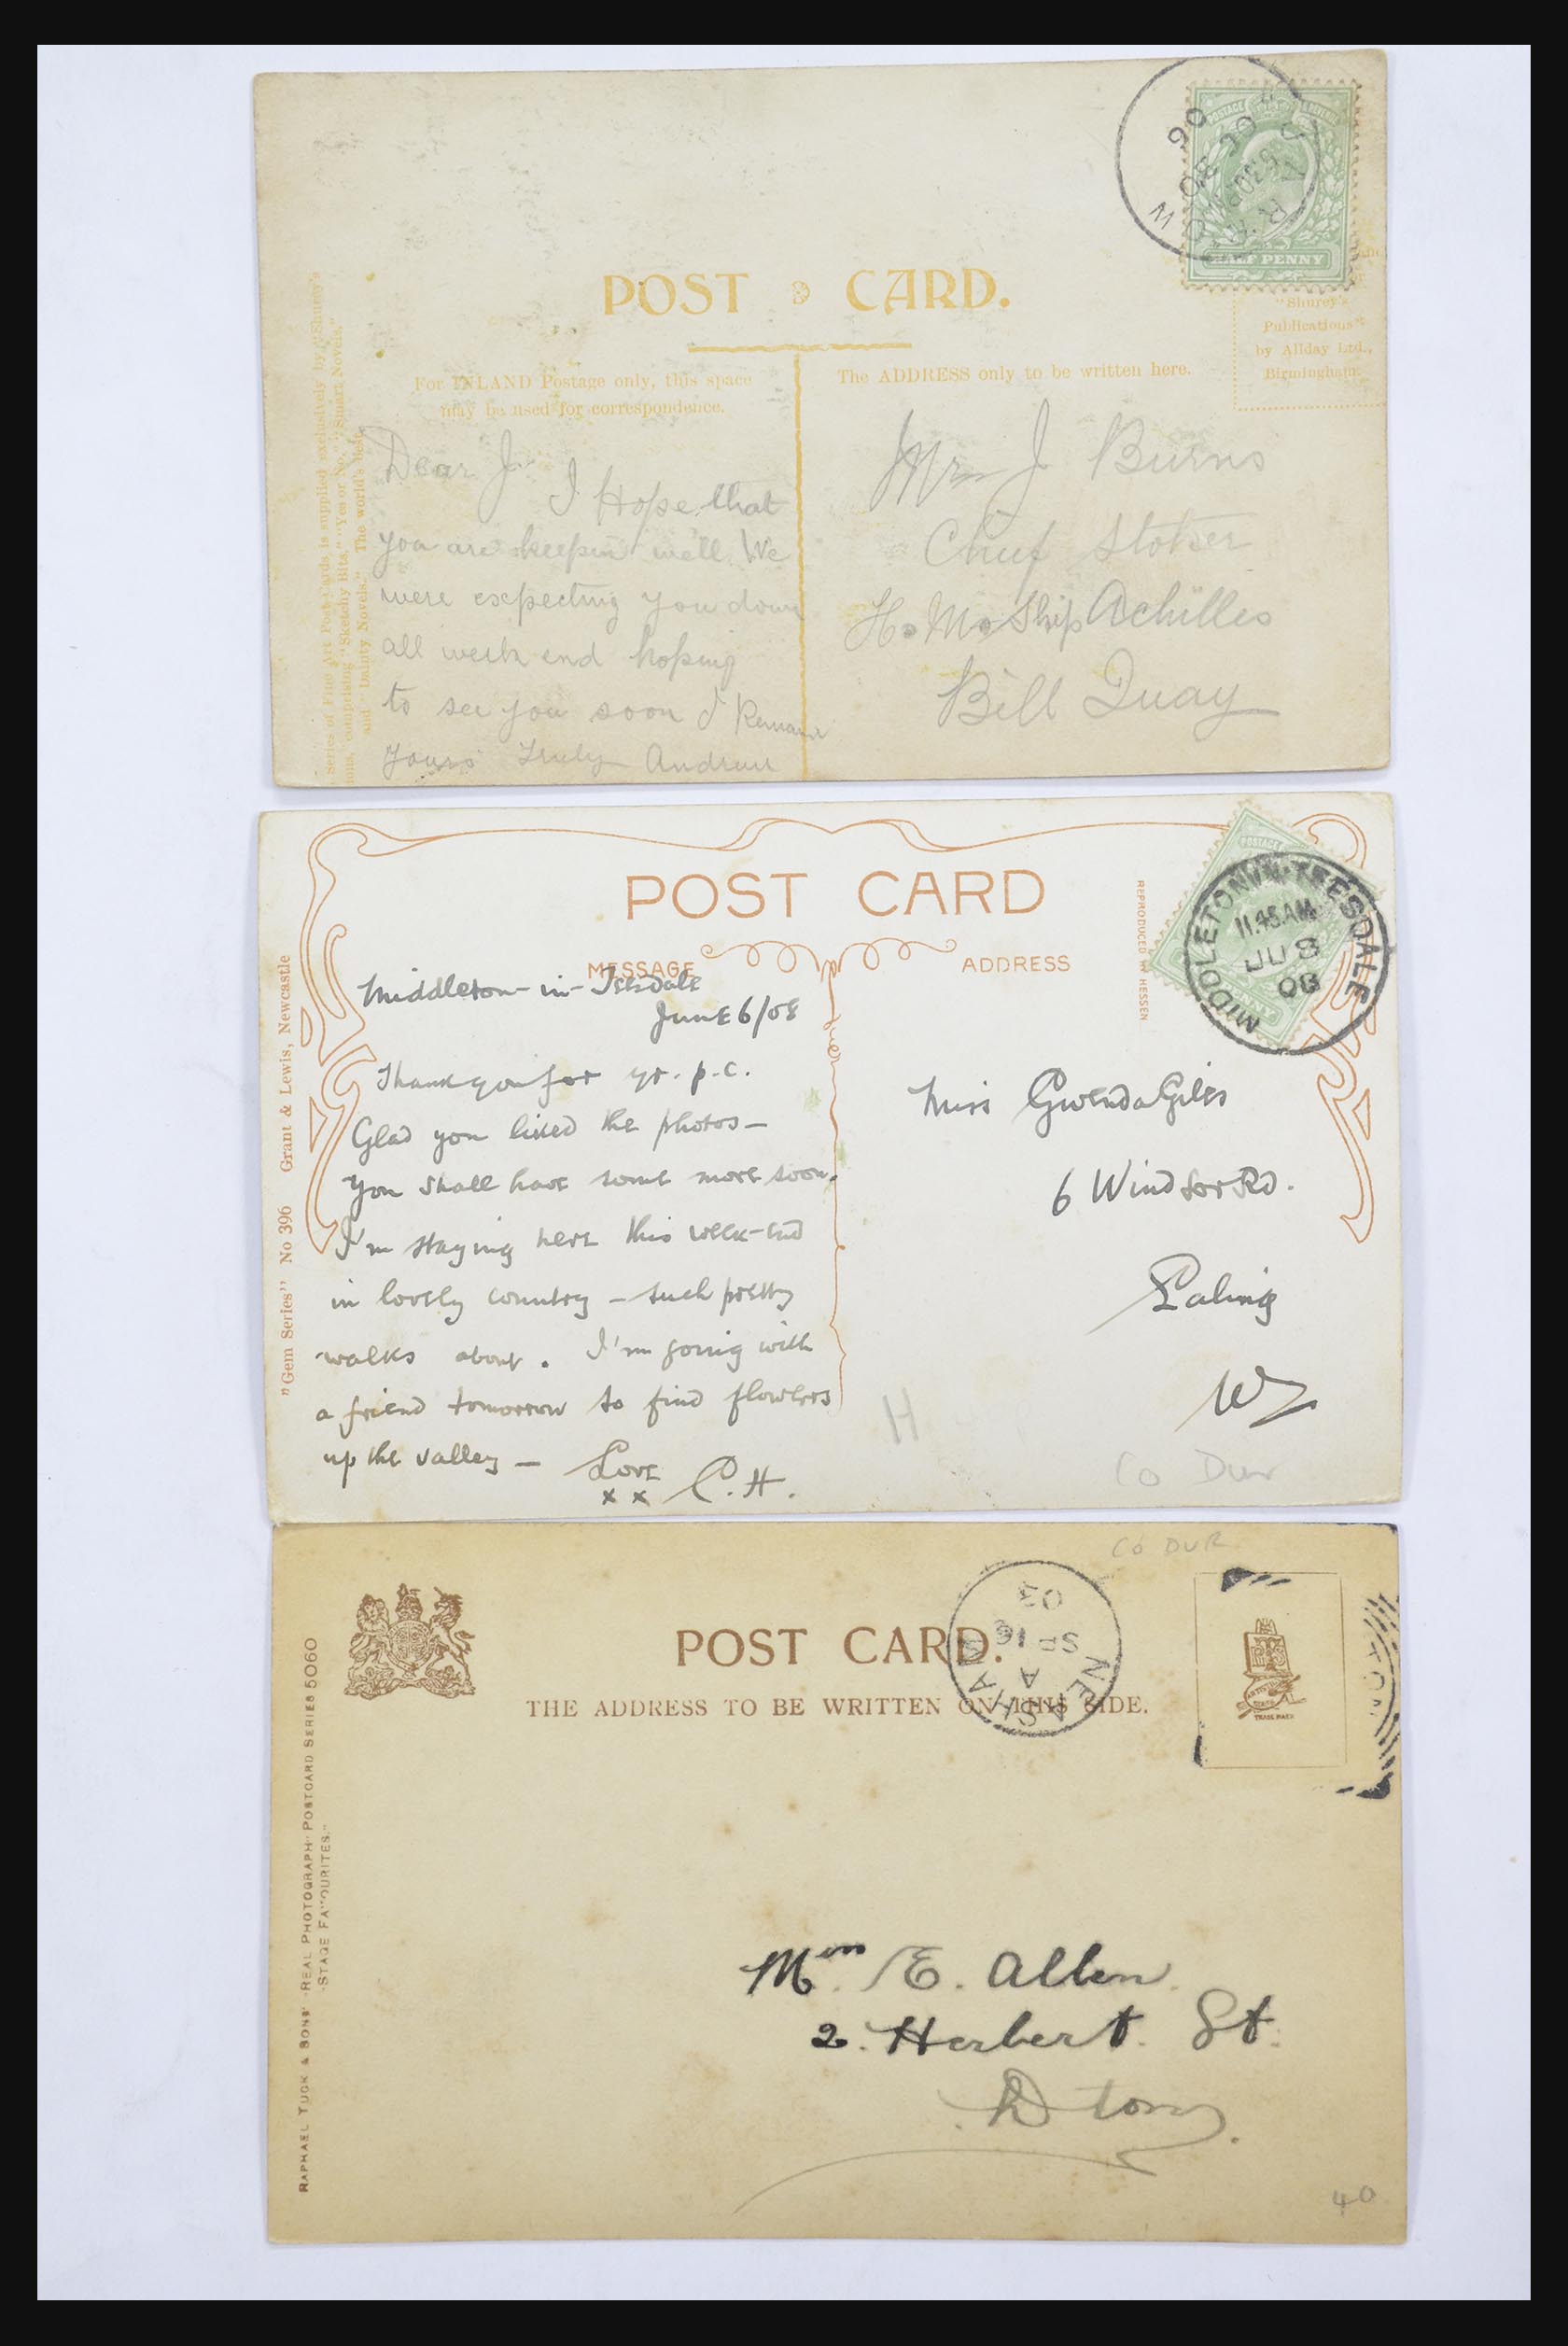 POST CARD.
HALF PENNY
"Shurey's
Publications"
by Allday Ltd.,
Birmingham.
For INLAND Postage only, this space
may be used for correspondence.
The ADDRESS only to be written here.
Series of Fine Art Post Cards is supplied exclusively by "Shurey's
comprising "Sketchy Bits," "Yes or No," "Smart Novels,"
and "Dainty Novels." The world's best
JARROW
6.30 PM
DE 30
06
Dear J. I Hope that
you are keepin well We
were expecting you down
all week end hoping
to see you soon I Remain
yours Truly Andrew
Mr J Burns
Chief Stoker
H. M. Ship Achilles
Bill Quay
POST CARD
MESSAGE
ADDRESS
REPRODUCED IN HESSEN
"Gem Series" No 396 Grant & Lewis, Newcastle
MIDDLETON-IN-TEESDALE
11.45 AM
JU 8
08
Middleton-in-Teesdale
June 6/08
Thank you for yr. p.c.
Glad you liked the photos—
You shall have some more soon.
I'm staying here this week-end
in lovely country — such pretty
walks about. I'm going with
a friend tomorrow to find flowers
up the valley — Love C.H.
x x
Miss Gwenda Giles
6 Windsor Rd.
Ealing
W
H
Co Dur
CO DUR
POST CARD.
THE ADDRESS TO BE WRITTEN ON THIS SIDE.
TRADE MARK
RAPHAEL TUCK & SONS' "REAL PHOTOGRAPH" POSTCARD SERIES 5060
"STAGE FAVOURITES."
NEASHAM
A
SP 16
03
Miss E. Allen.
2. Herbert. St.
D'ton.
40